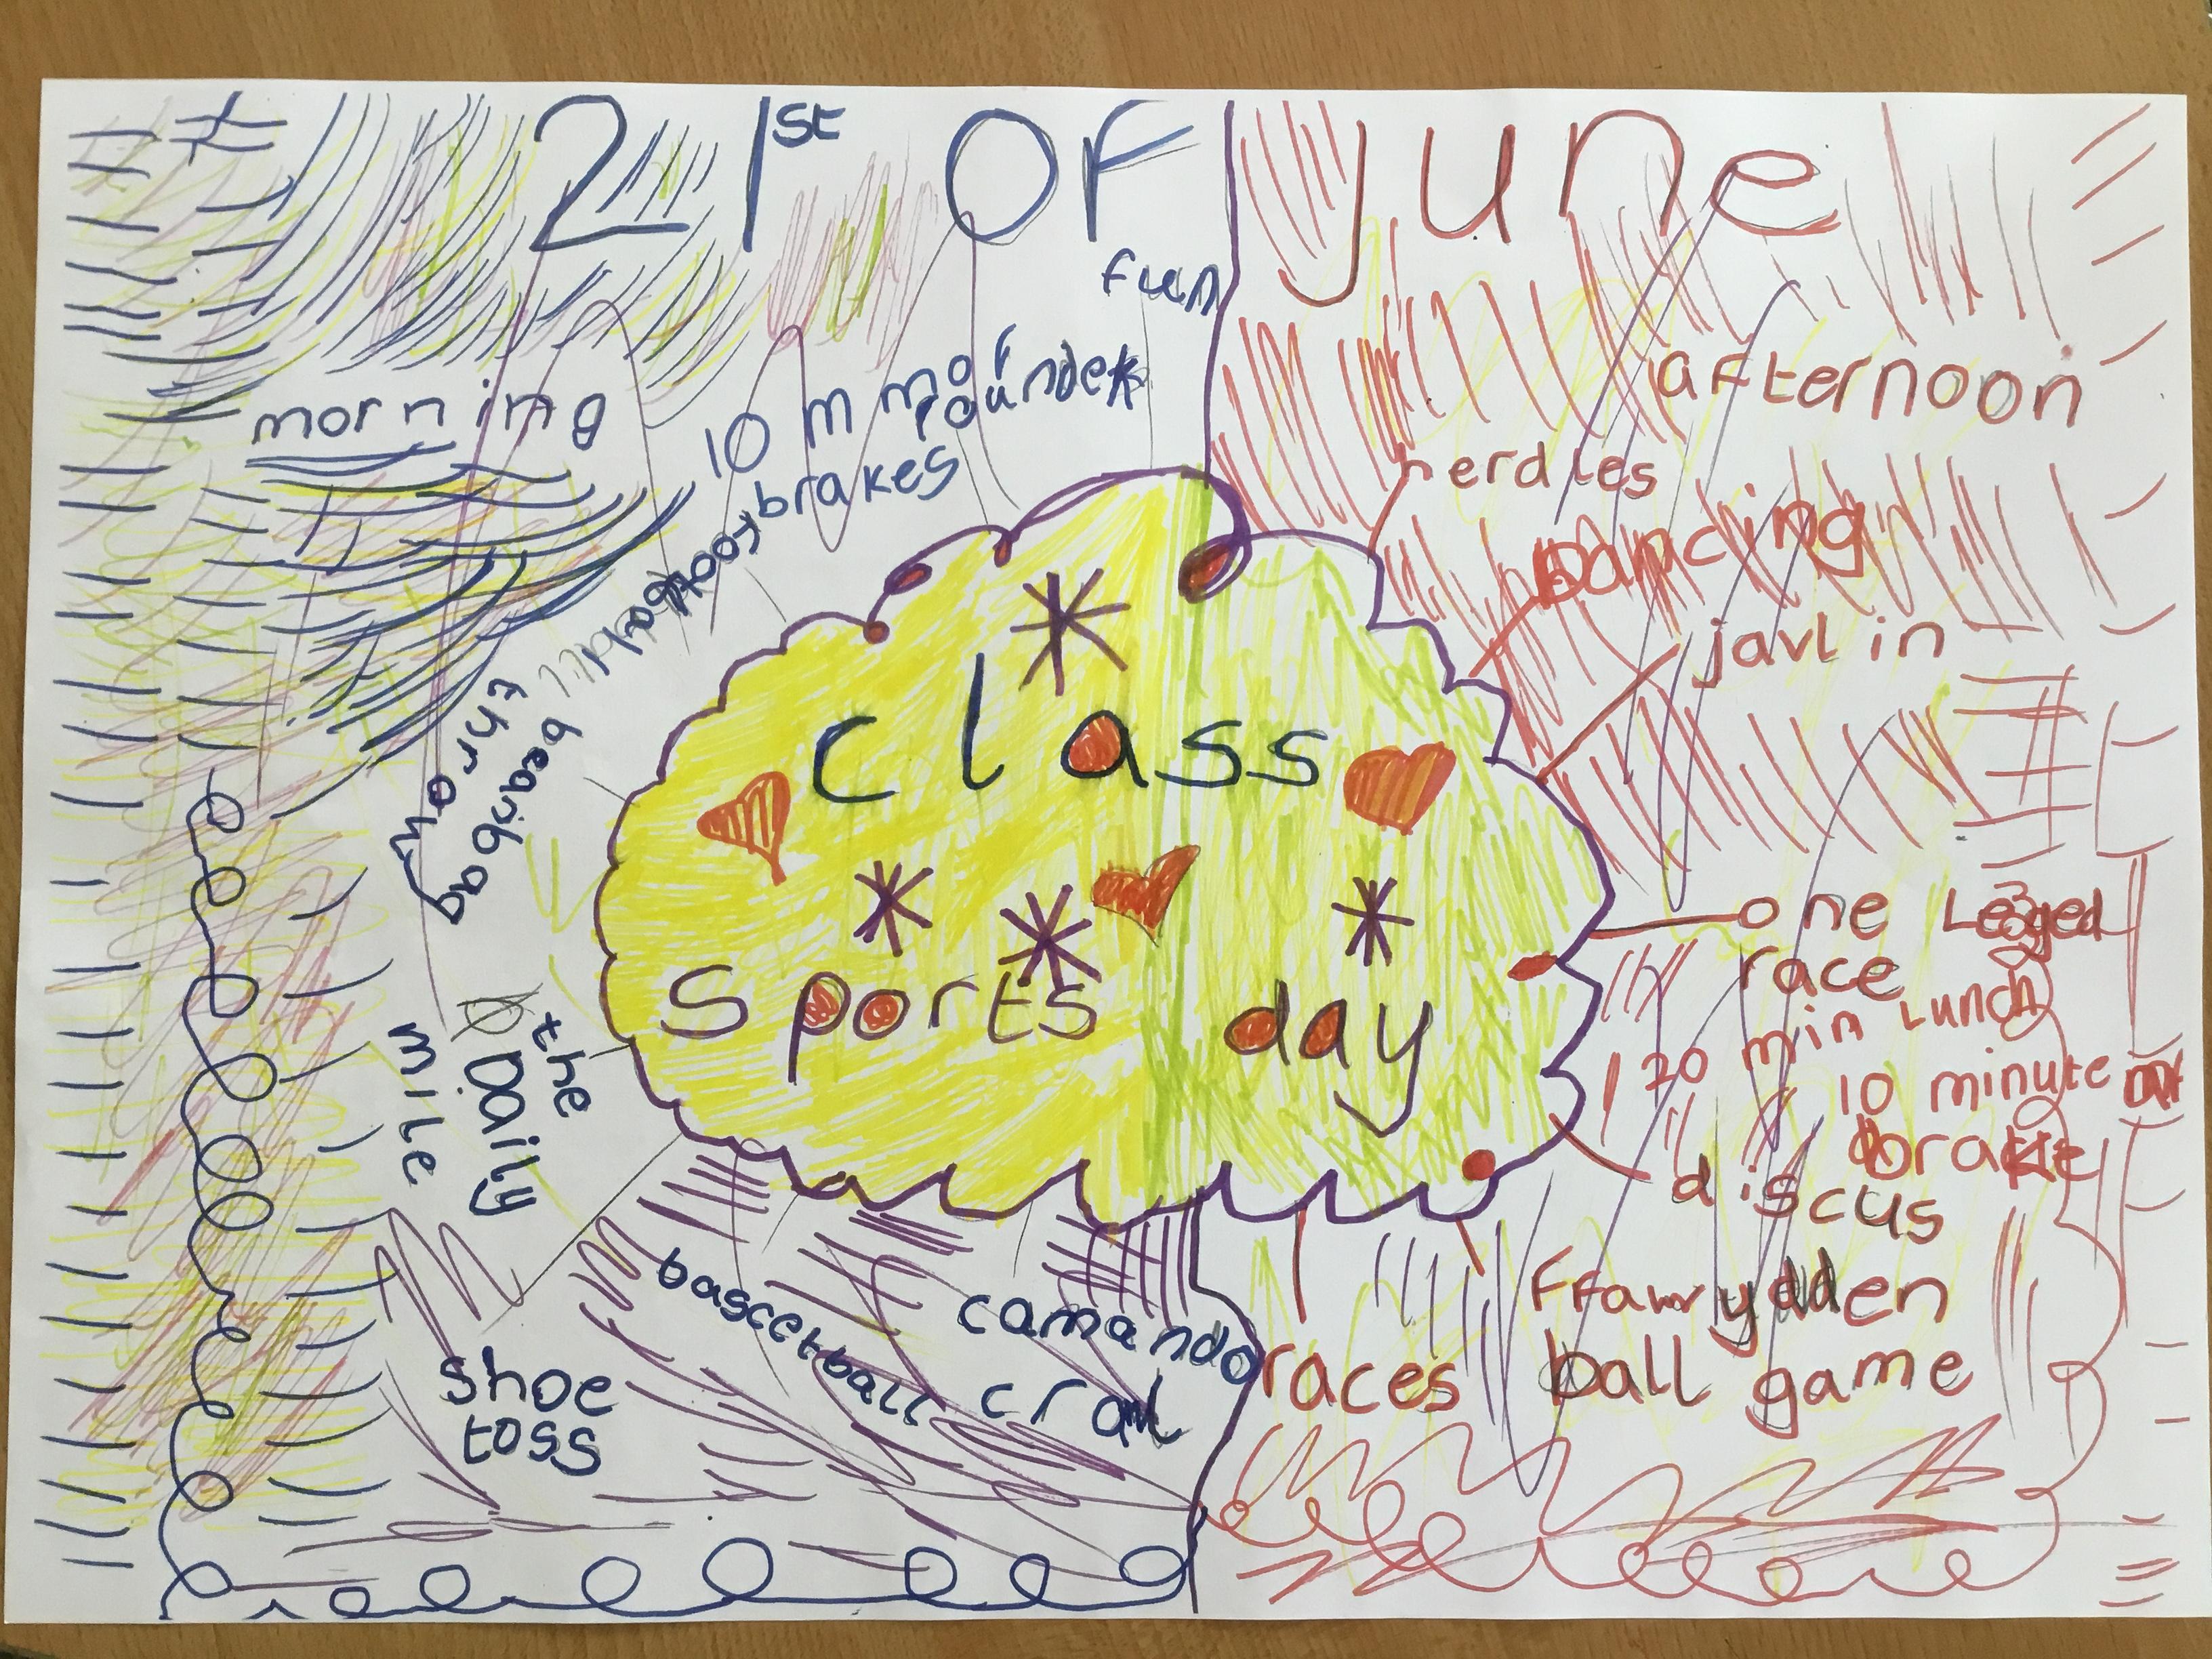 21st of June
fun
morning
10 m
of
rounder
brakes
football
beanbag
throw
the
Daily
mile
shoe
toss
bascetball
camando
cral
class
sports day
afternoon
herdles
Dancing
javlin
one Leged
race
20 min Lunch
10 minute
brake
discus
Ffawrydden
ball game
races